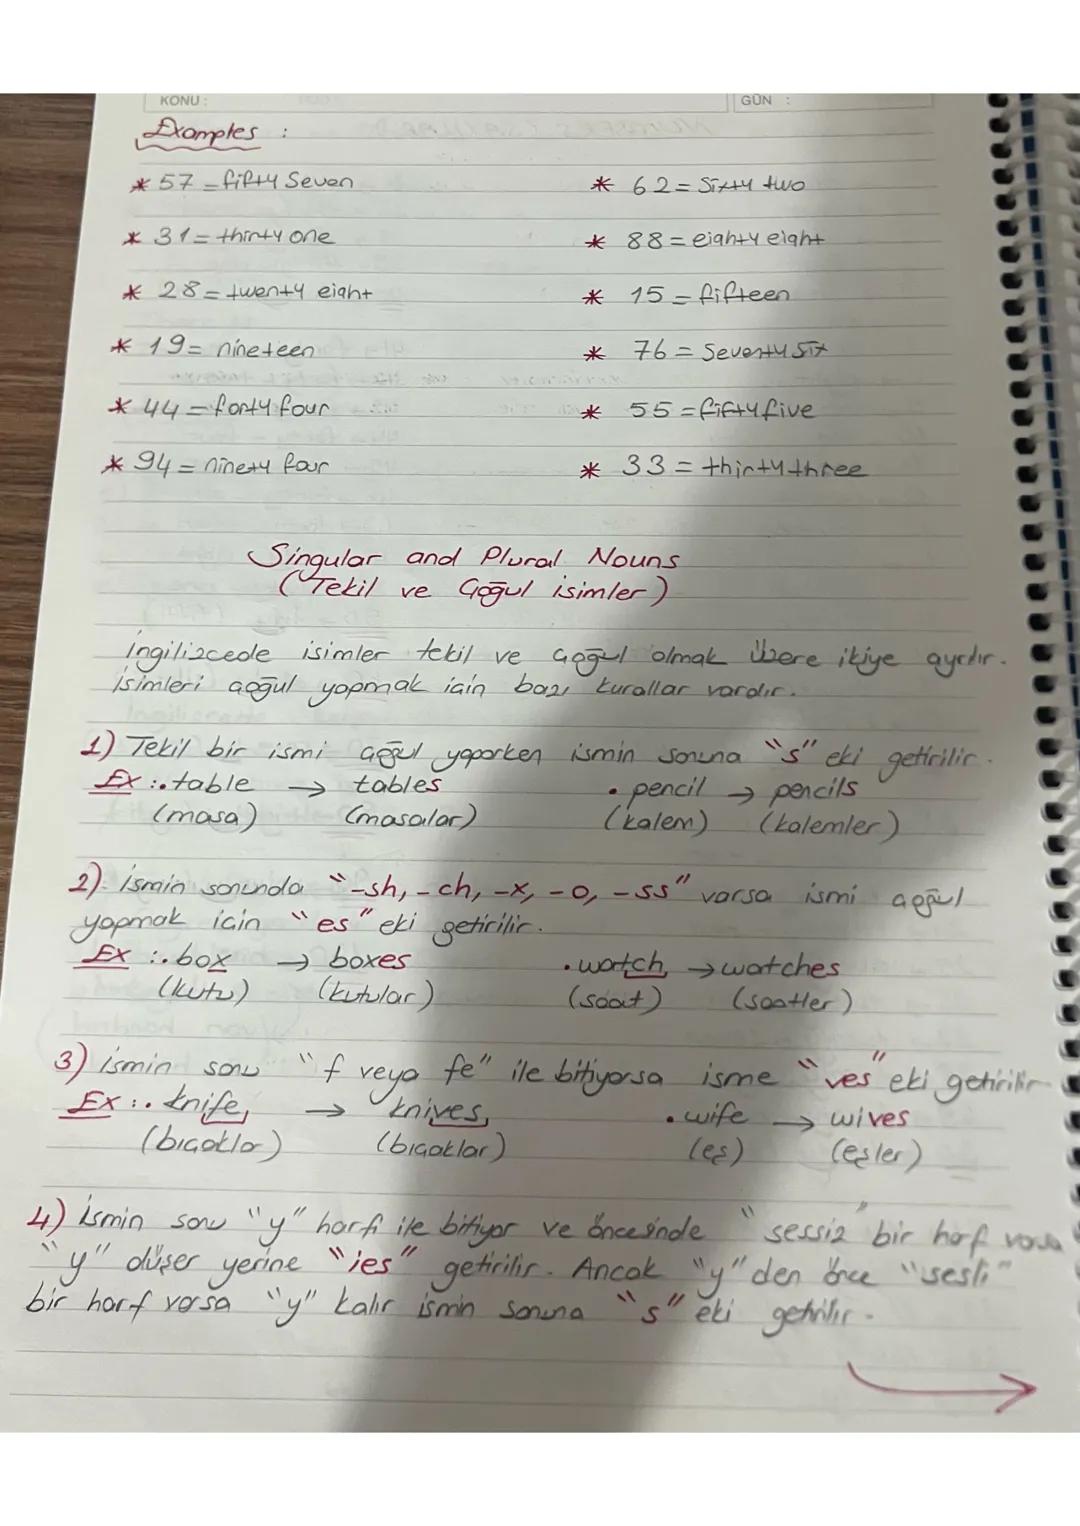 KONU :
GÜN :
Examples :
* 57 = fifty Seven
* 62 = Sixty two
* 31 = thirty one
* 88 = eighty eight
* 28 = twenty eight
* 15 = fifteen
* 19 = nineteen
* 76 = Seventy Six
* 44 = forty four
* 55 = fifty five
* 94 = ninety four
* 33 = thirty three
Singular and Plural Nouns
(Tekil ve Çoğul isimler)
İngilizcede isimler tekil ve çoğul olmak üzere ikiye ayrılır.
İsimleri çoğul yapmak için bazı kurallar vardır.
1) Tekil bir ismi çoğul yaparken ismin sonuna "s" eki getirilir.
Ex : • table → tables • pencil → pencils
(masa) (masalar) (kalem) (kalemler)
2) İsmin sonunda "-sh, -ch, -x, -o, -ss" varsa ismi çoğul
yapmak için "es" eki getirilir.
Ex : • box → boxes • watch → watches
(kutu) (kutular) (saat) (saatler)
3) İsmin sonu "f veya fe" ile bitiyorsa isme "ves" eki getirilir
Ex : • knife → knives • wife → wives
(bıçakla) (bıçaklar) (eş) (eşler)
4) İsmin sonu "y" harfi ile bitiyor ve öncesinde "sessiz" bir harf varsa
"y" düşer yerine "ies" getirilir. Ancak "y" den önce "sesli"
bir harf varsa "y" kalır ismin sonuna "s" eki getirilir.